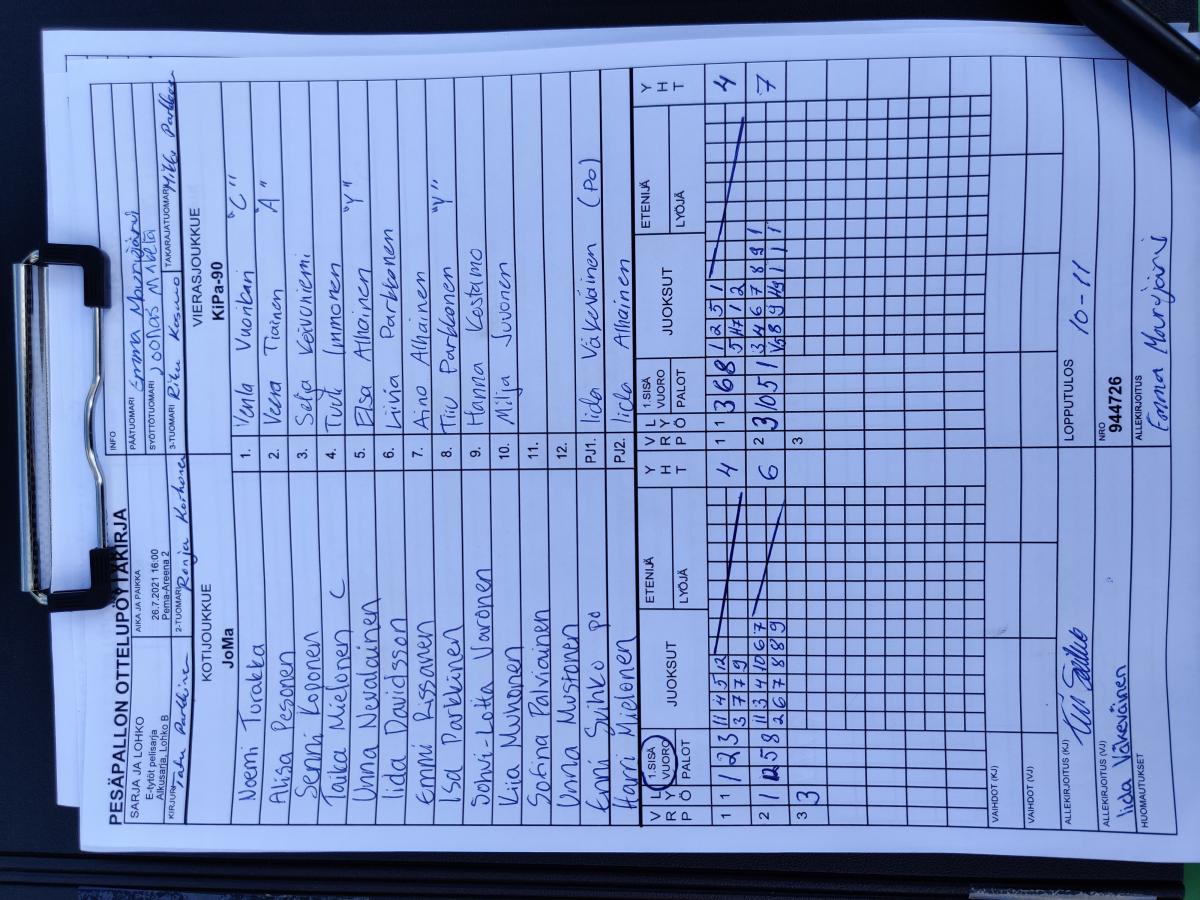 PESÄPALLON OTTELUPÖYTÄKIRJA
INFO
SARJA JA LOHKO
E-tytöt pelisarja
Alkusarja, Lohko B
AIKA JA PAIKKA
26.7.2021 16:00
Pema-Areena 2
PÄÄTUOMARI Emma Maurijärvi
SYÖTTÖTUOMARI Joonas
KIRJURI Parkkinen
2-TUOMARI Ronja Korhonen
3-TUOMARI Riku Kosmo
TAKARAJATUOMARI Mika Parkkonen
KOTIJOUKKUE
JoMa
VIERASJOUKKUE
KiPa-90
Noemi Turakka
1. Venla Vuorikari "C"
Alisa Pesonen
2. Veera Tiainen "A"
Senni Koponen
3. Selja Keivuniemi
Taika Mielonen C
4. Tuuli Immonen
Unna Nevalainen
5. Elsa Alhainen "Y"
Iida Davidsson
6. Liivia Parkkonen
Emmi Rissanen
7. Aino Alhainen
Isa Parkkinen
8. Tiiu Parkkonen "Y"
Sohvi-Lotta Varonen
9. Hanna Kostamo
Kiia Muhonen
10. Milja Juvonen
Sofina Palviainen
11.
Unna Mustonen
12.
Enni Suhko po
PJ1. Iida Väkeväinen (Po)
Harri Mielonen
PJ2. Iida Alhainen
V R P L Y Ö 1.SISÄ VUORO PALOT JUOKSUT ETENIJÄ LYÖJÄ Y H T
V R P L Y Ö 1.SISÄ VUORO PALOT JUOKSUT ETENIJÄ LYÖJÄ Y H T
1 1 1 2 3 11 4 5 12 4
3 7 7 9
1 1 3 6 8 1 2 5 1 4
2 1 12 5 8 11 3 4 10 6 7 6
2 6 7 8 8 9
2 3 10 5 1 3 4 6 7 8 9 1 7
3 3
3
VAIHDOT (KJ)
VAIHDOT (VJ)
ALLEKIRJOITUS (KJ)
LOPPUTULOS 10-11
ALLEKIRJOITUS (VJ) Iida Väkeväinen
NRO
944726
HUOMAUTUKSET
ALLEKIRJOITUS
Emma Maurijärvi